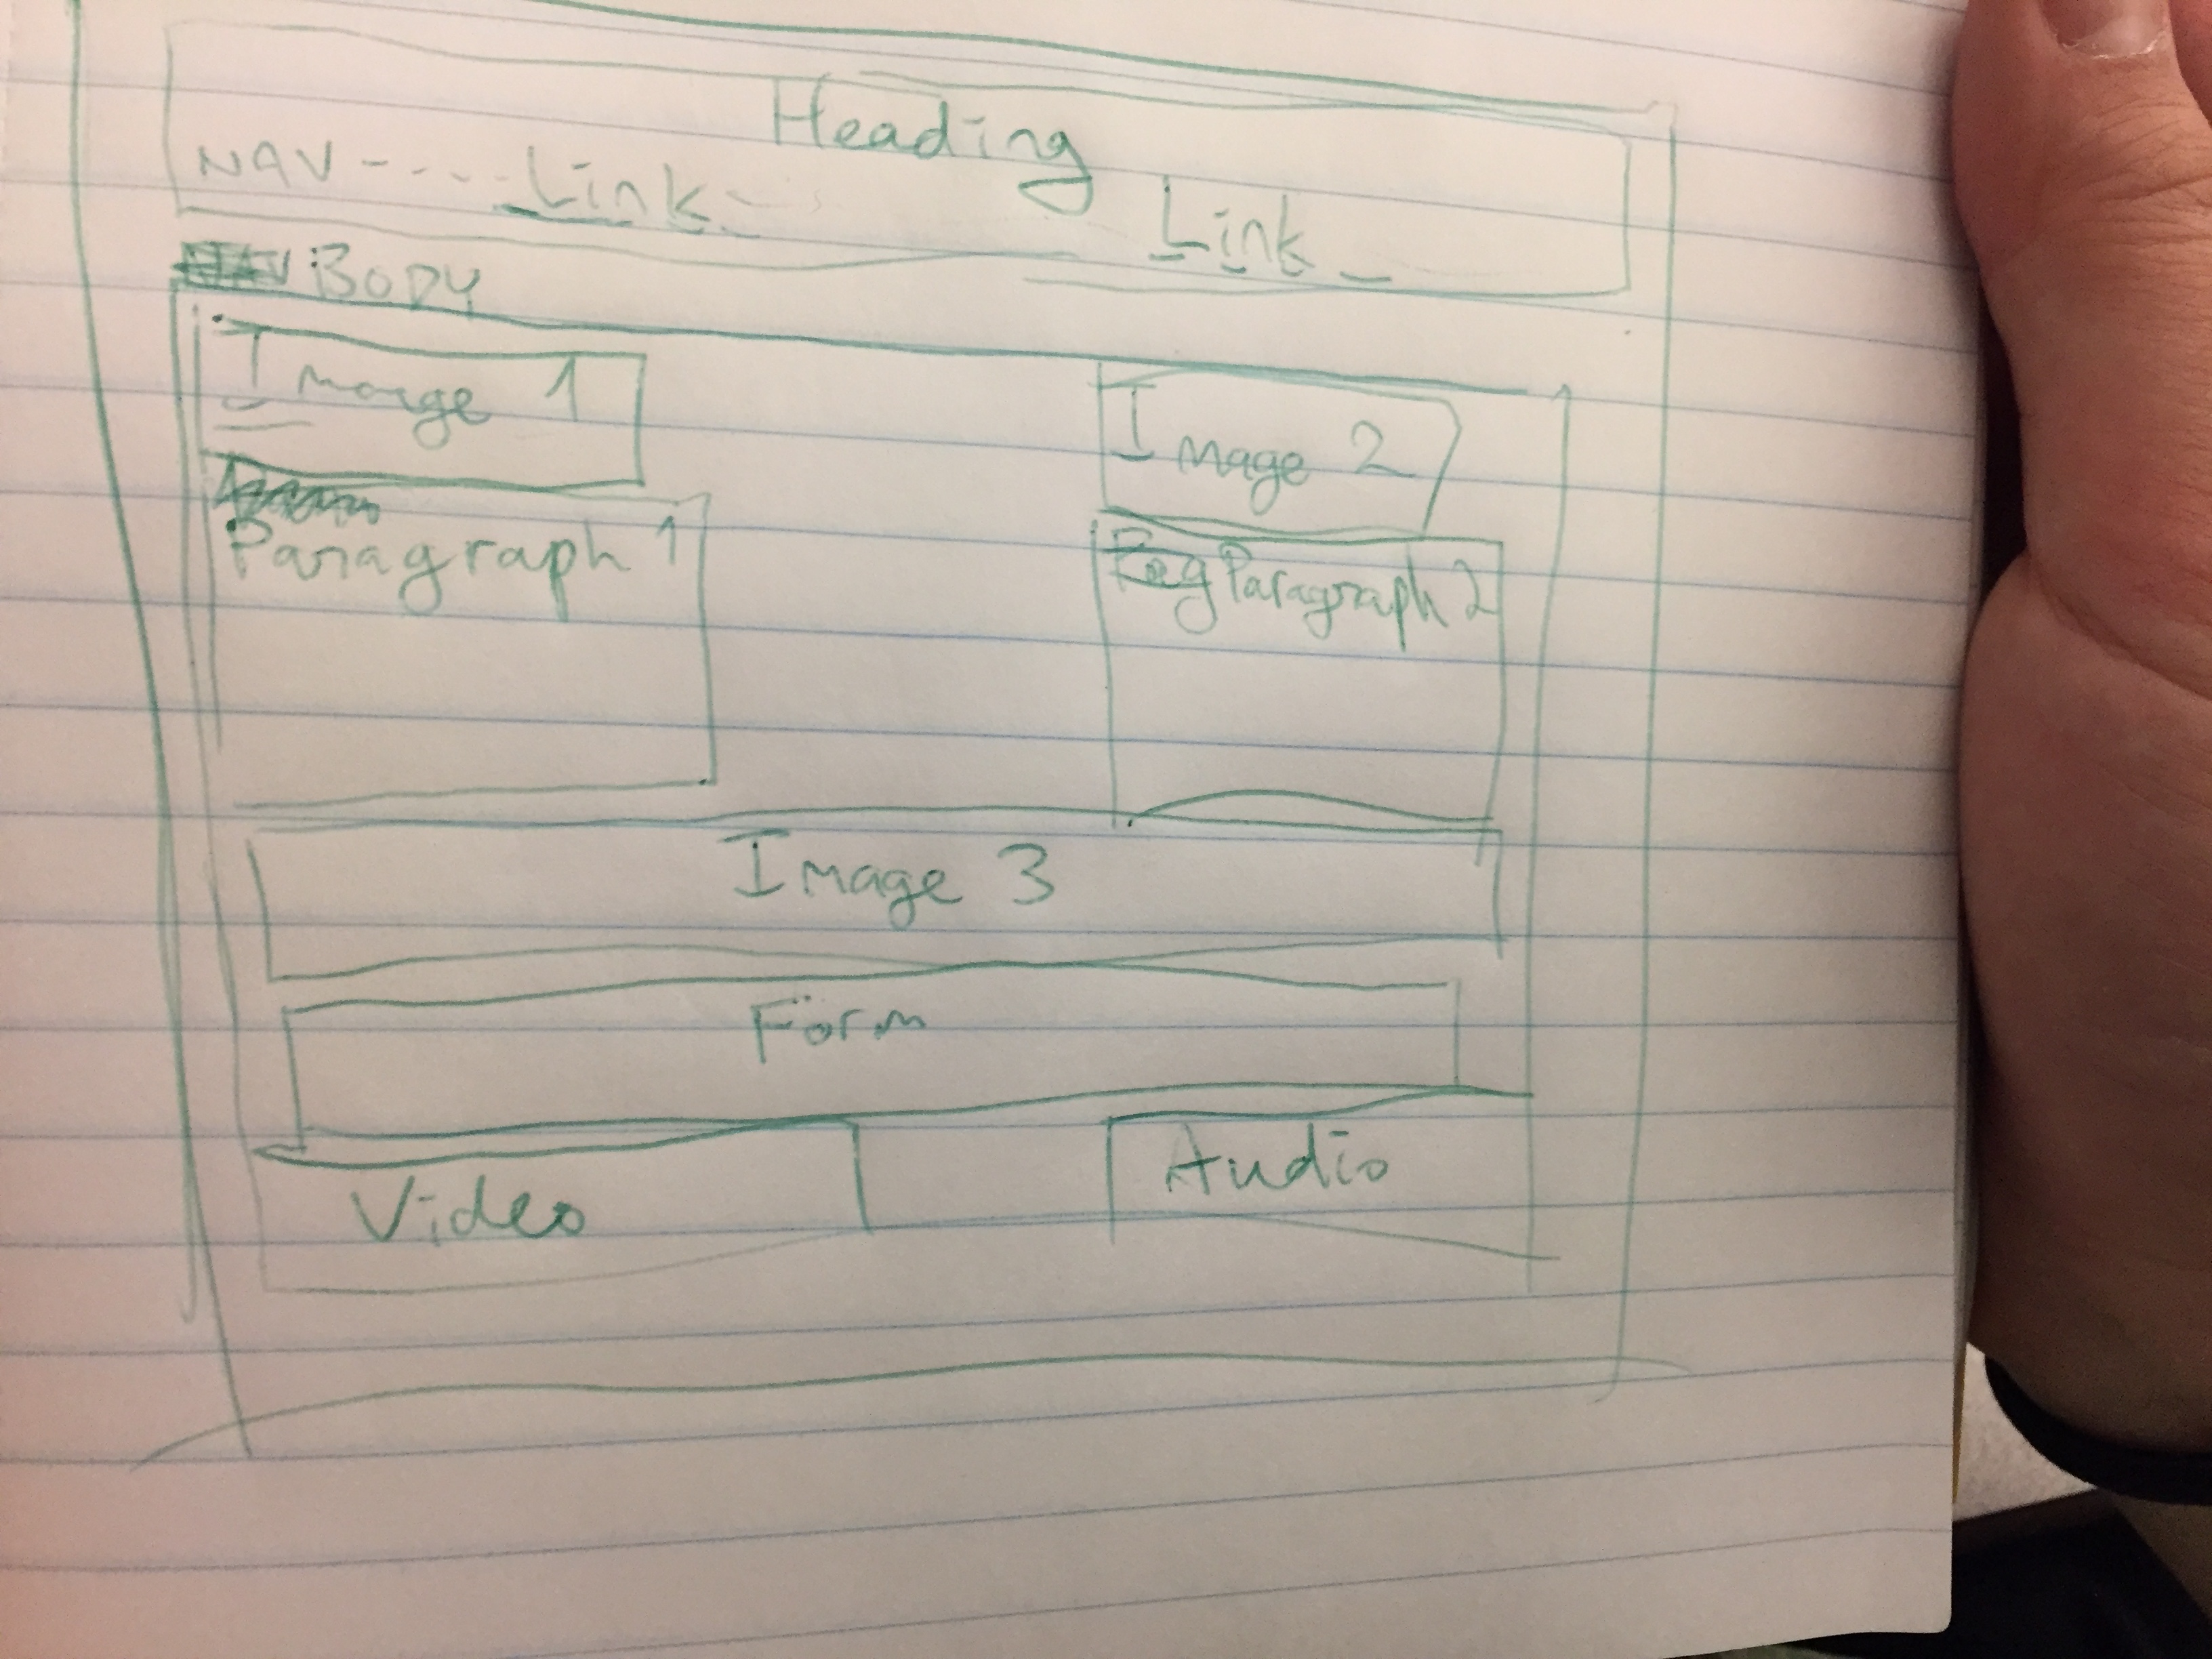 Heading
NAV - - - - Link
Link
BODY
Image 1
Image 2
Paragraph 1
Paragraph 2
Image 3
Form
Video
Audio